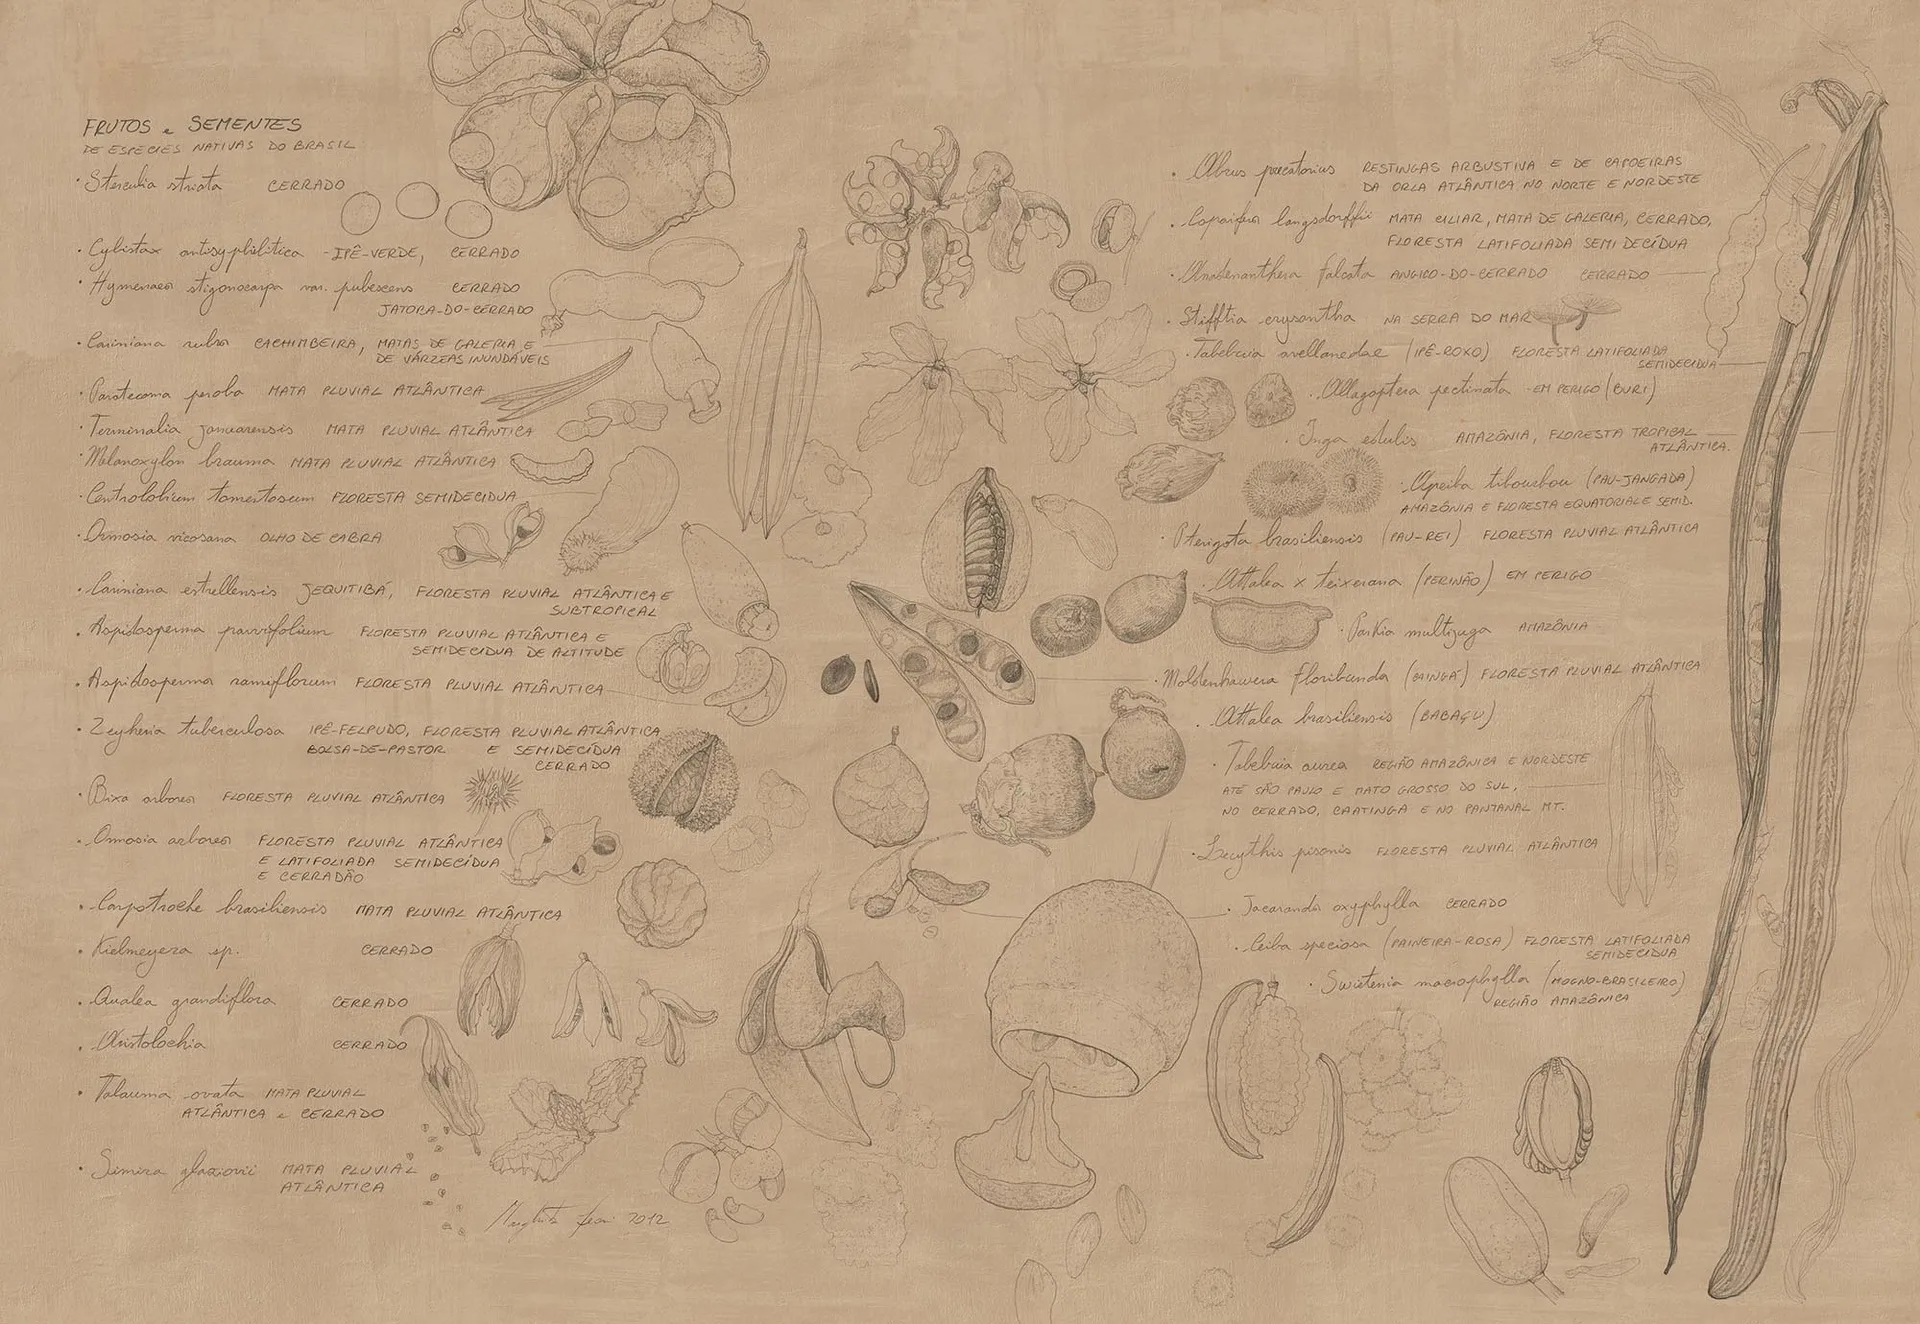 FRUTOS e SEMENTES
DE ESPECIES NATIVAS DO BRASIL
· Sterculia striata CERRADO
· Cybistax antisyphilitica - IPÊ-VERDE, CERRADO
· Hymenaea stigonocarpa var. pubescens CERRADO
JATOBA-DO-CERRADO
· Cariniana rubra CACHIMBEIRA, MATAS DE GALERIA E
DE VÁRZEAS INUNDÁVEIS
· Paratecoma peroba MATA PLUVIAL ATLÂNTICA
· Terminalia januarensis MATA PLUVIAL ATLÂNTICA
· Melanoxylon brauma MATA PLUVIAL ATLÂNTICA
· Centrolobium tomentosum FLORESTA SEMIDECIDUA
· Ormosia vicosana OLHO DE CABRA
· Cariniana estrellensis JEQUITIBÁ, FLORESTA PLUVIAL ATLÂNTICA E
SUBTROPICAL
· Aspidosperma parvifolium FLORESTA PLUVIAL ATLÂNTICA E
SEMIDECIDUA DE ALTITUDE
· Aspidosperma ramiflorum FLORESTA PLUVIAL ATLÂNTICA
· Zeyheria tuberculosa IPÊ-FELPUDO, FLORESTA PLUVIAL ATLÂNTICA
BOLSA-DE-PASTOR E SEMIDECÍDUA
CERRADO
· Bixa arborea FLORESTA PLUVIAL ATLÂNTICA
· Ormosia arborea FLORESTA PLUVIAL ATLÂNTICA
E LATIFOLIADA SEMIDECÍDUA
E CERRADÃO
· Carpotroche brasiliensis MATA PLUVIAL ATLÂNTICA
· Kielmeyera sp. CERRADO
· Qualea grandiflora CERRADO
· Aristolochia CERRADO
· Talauma ovata MATA PLUVIAL
ATLÂNTICA e CERRADO
· Simira glaziovii MATA PLUVIAL
ATLÂNTICA
2012
· Abrus precatorius RESTINGAS ARBUSTIVA E DE CAPOEIRAS
DA ORLA ATLÂNTICA NO NORTE E NORDESTE
· Copaifera langsdorffii MATA CILIAR, MATA DE GALERIA, CERRADO,
FLORESTA LATIFOLIADA SEMIDECÍDUA
· Anadenanthera falcata ANGICO-DO-CERRADO CERRADO
· Stifftia crysantha NA SERRA DO MAR
· Tabebuia avellanedae (IPÊ-ROXO) FLORESTA LATIFOLIADA
SEMIDECÍDUA
· Allagoptera pectinata - EM PERIGO (BURI)
· Inga edulis AMAZÔNIA, FLORESTA TROPICAL
ATLÂNTICA.
· Apeiba tibourbou (PAU-JANGADA)
AMAZÔNIA E FLORESTA EQUATORIAL E SEMID.
· Pterigota brasiliensis (PAU-REI) FLORESTA PLUVIAL ATLÂNTICA
· Attalea x teixerana (PERINÃO) EM PERIGO
· Parkia multijuga AMAZÔNIA
· Moldenhawera floribunda FLORESTA PLUVIAL ATLÂNTICA
· Attalea brasiliensis (BABAÇU)
· Tabebuia aurea REGIÃO AMAZÔNICA E NORDESTE
ATÉ SÃO PAULO E MATO GROSSO DO SUL,
NO CERRADO, CAATINGA E NO PANTANAL MT.
· Lecythis pisonis FLORESTA PLUVIAL ATLÂNTICA
· Jacaranda oxyphylla CERRADO
· Ceiba speciosa (PAINEIRA-ROSA) FLORESTA LATIFOLIADA
SEMIDECIDUA
· Swietenia macrophylla (MOGNO-BRASILEIRO)
REGIÃO AMAZÔNICA